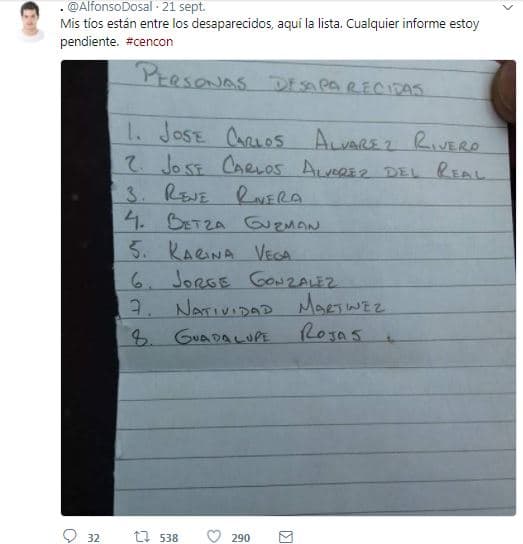 . @AlfonsoDosal · 21 sept.
Mis tíos están entre los desaparecidos, aquí la lista. Cualquier informe estoy
pendiente. #cencon
PERSONAS DESAPARECIDAS
1. JOSE CARLOS ALVAREZ RIVERO
2. JOSE CARLOS ALVAREZ DEL REAL
3. RENE RIVERA
4. BETZA GUZMAN
5. KARINA VEGA
6. JORGE GONZALEZ
7. NATIVIDAD MARTINEZ
8. GUADALUPE ROJAS
32 538 290